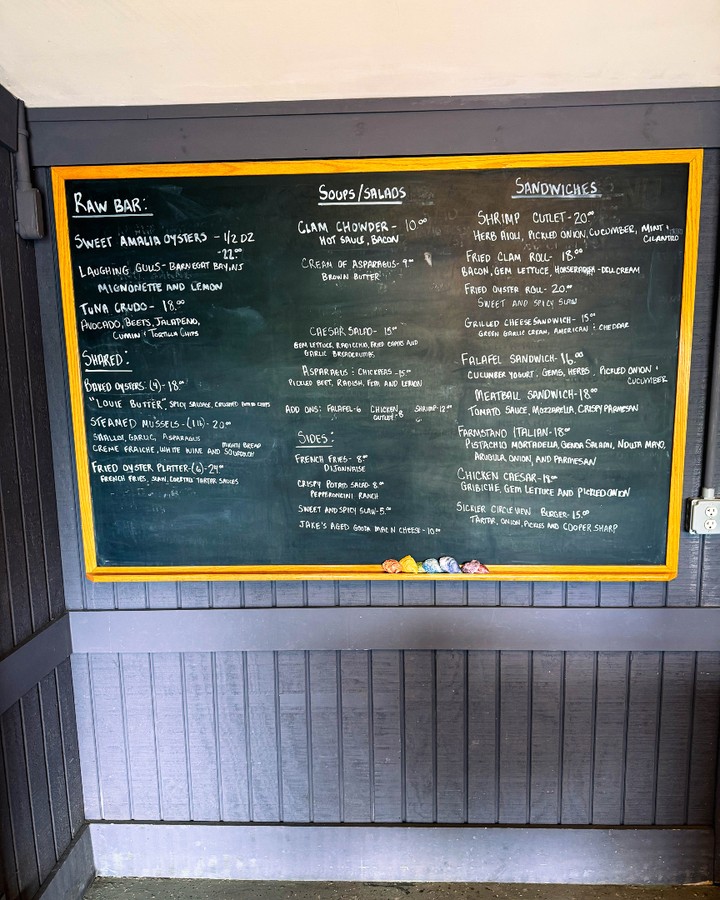 RAW BAR:
SWEET AMALIA OYSTERS - 1/2 DZ
-22.00
LAUGHING GULLS - BARNEGAT BAY, NJ
MIGNONETTE AND LEMON
TUNA CRUDO - 18.00
AVOCADO, BEETS, JALAPENO,
CUMIN + TORTILLA CHIPS
SHARED:
BAKED OYSTERS: (4) - 18.00
"LOUIE BUTTER", SPICY SAUSAGE, CRUSHED POTATO CHIPS
STEAMED MUSSELS - (1 lb) - 20.00
SHALLOT, GARLIC, ASPARAGUS
CREME FRAICHE, WHITE WINE AND MIGHTY BREAD
SOURDOUGH
FRIED OYSTER PLATTER - (6) - 24.00
FRENCH FRIES, SLAW, TARTAR SAUCES
SOUPS/SALADS
CLAM CHOWDER - 10.00
HOT SAUCE, BACON
CREAM OF ASPARAGUS - 9.00
BROWN BUTTER
CAESAR SALAD - 15.00
GEM LETTUCE, RADICCHIO, FRIED CAPERS AND
GARLIC BREADCRUMBS
ASPARAGUS + CHICKPEAS - 15.00
PICKLED BEET, RADISH, FETA, AND LEMON
ADD ONS: FALAFEL-6 CHICKEN CUTLET-8 SHRIMP-12.00
SIDES:
FRENCH FRIES - 8.00
DIJONNAISE
CRISPY POTATO SALAD - 8.00
PEPPERONCINI RANCH
SWEET AND SPICY SLAW - 5.00
JAKE'S AGED GOUDA MAC N CHEESE - 10.00
SANDWICHES
SHRIMP CUTLET - 20.00
HERB AIOLI, PICKLED ONION, CUCUMBER, MINT +
CILANTRO
FRIED CLAM ROLL - 18.00
BACON, GEM LETTUCE, HORSERADISH - DILL CREAM
FRIED OYSTER ROLL - 20.00
SWEET AND SPICY SLAW
GRILLED CHEESE SANDWICH - 15.00
GREEN GARLIC CREAM, AMERICAN + CHEDDAR
FALAFEL SANDWICH - 16.00
CUCUMBER YOGURT, GEMS, HERBS, PICKLED ONION +
CUCUMBER
MEATBALL SANDWICH - 18.00
TOMATO SAUCE, MOZZARELLA, CRISPY PARMESAN
FARMSTAND ITALIAN - 18.00
PISTACHIO MORTADELLA, GENOA SALAMI, NDUJA MAYO,
ARUGULA, ONION, AND PARMESAN
CHICKEN CAESAR - 18.00
GRIBICHE, GEM LETTUCE AND PICKLED ONION
SICKLER CIRCLE VIEW BURGER - 15.00
TARTAR, ONION, PICKLES AND COOPER SHARP